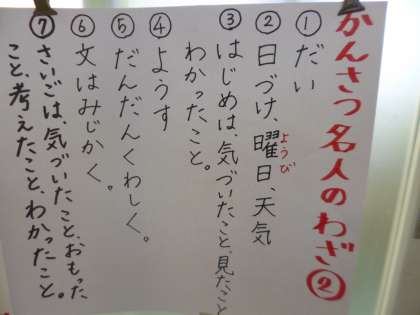 かんさつ名人のわざ②
①だい
②日づけ、曜日、天気
ようび
③はじめは、気づいたこと、見たこと
わかったこと。
④ようす
⑤だんだんくわしく。
⑥文はみじかく。
⑦さいごは、気づいたこと、おもった
こと、考えたこと、わかったこと。